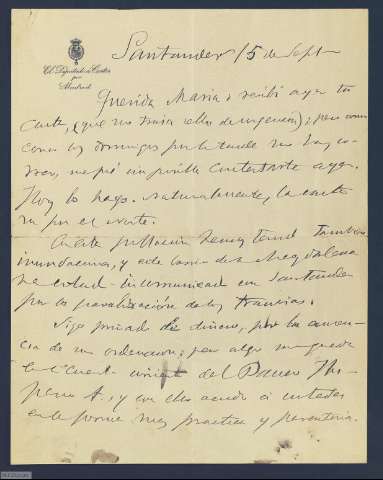 El Diputado a Cortes
por
Madrid
Santander 15 de Sept
Querida Maria: recibí ayer tu
carta, (que no traia sellos de urgencia); pero como
como los domingos por la tarde no hay co-
rreo, no fué posible contestarte ayer.
Hoy lo hago. Naturalmente, la carta
va por el Norte.
inundaciones, y este barrio de la Magdalena
ha estado incomunicado con Santander
por la paralización de los tranvias.
Sigo privado de dinero, por la ausen-
cia de un ordenanza; pero algo me queda
en la Cuenta del Banco His-
pano A., y con ello acudo a
en la forma mas practica y perentoria.